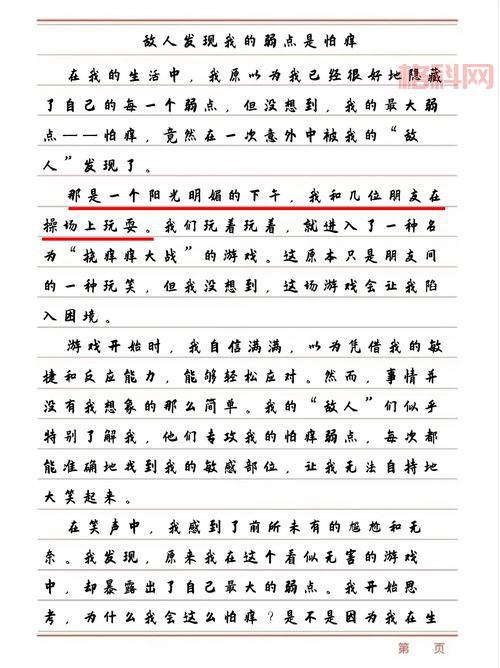 敌人发现我的弱点是怕痒
在我的生活中，我原以为我已经很好地隐藏
了自己的每一个弱点，但没想到，我的最大弱
点——怕痒，竟然在一次意外中被我的“敌
人”发现了。
那是一个阳光明媚的下午，我和几位朋友在
操场上玩耍。我们玩着玩着，就进入了一种名
为“挠痒痒大战”的游戏。这原本只是朋友间
的一种玩笑，但我没想到，这场游戏会让我陷
入困境。
游戏开始时，我自信满满，以为凭借我的敏
捷和反应能力，能够轻松应对。然而，事情并
没有我想象的那么简单。我的“敌人”们似乎
特别了解我，他们专攻我的怕痒弱点，每次都
能准确地找到我的敏感部位，让我无法自持地
大笑起来。
在笑声中，我感到了前所未有的尴尬和无
奈。我发现，原来我在这个看似无害的游戏
中，却暴露出了自己最大的弱点。我开始思
考，为什么我会这么怕痒？是不是因为我在生
第 页
格科网